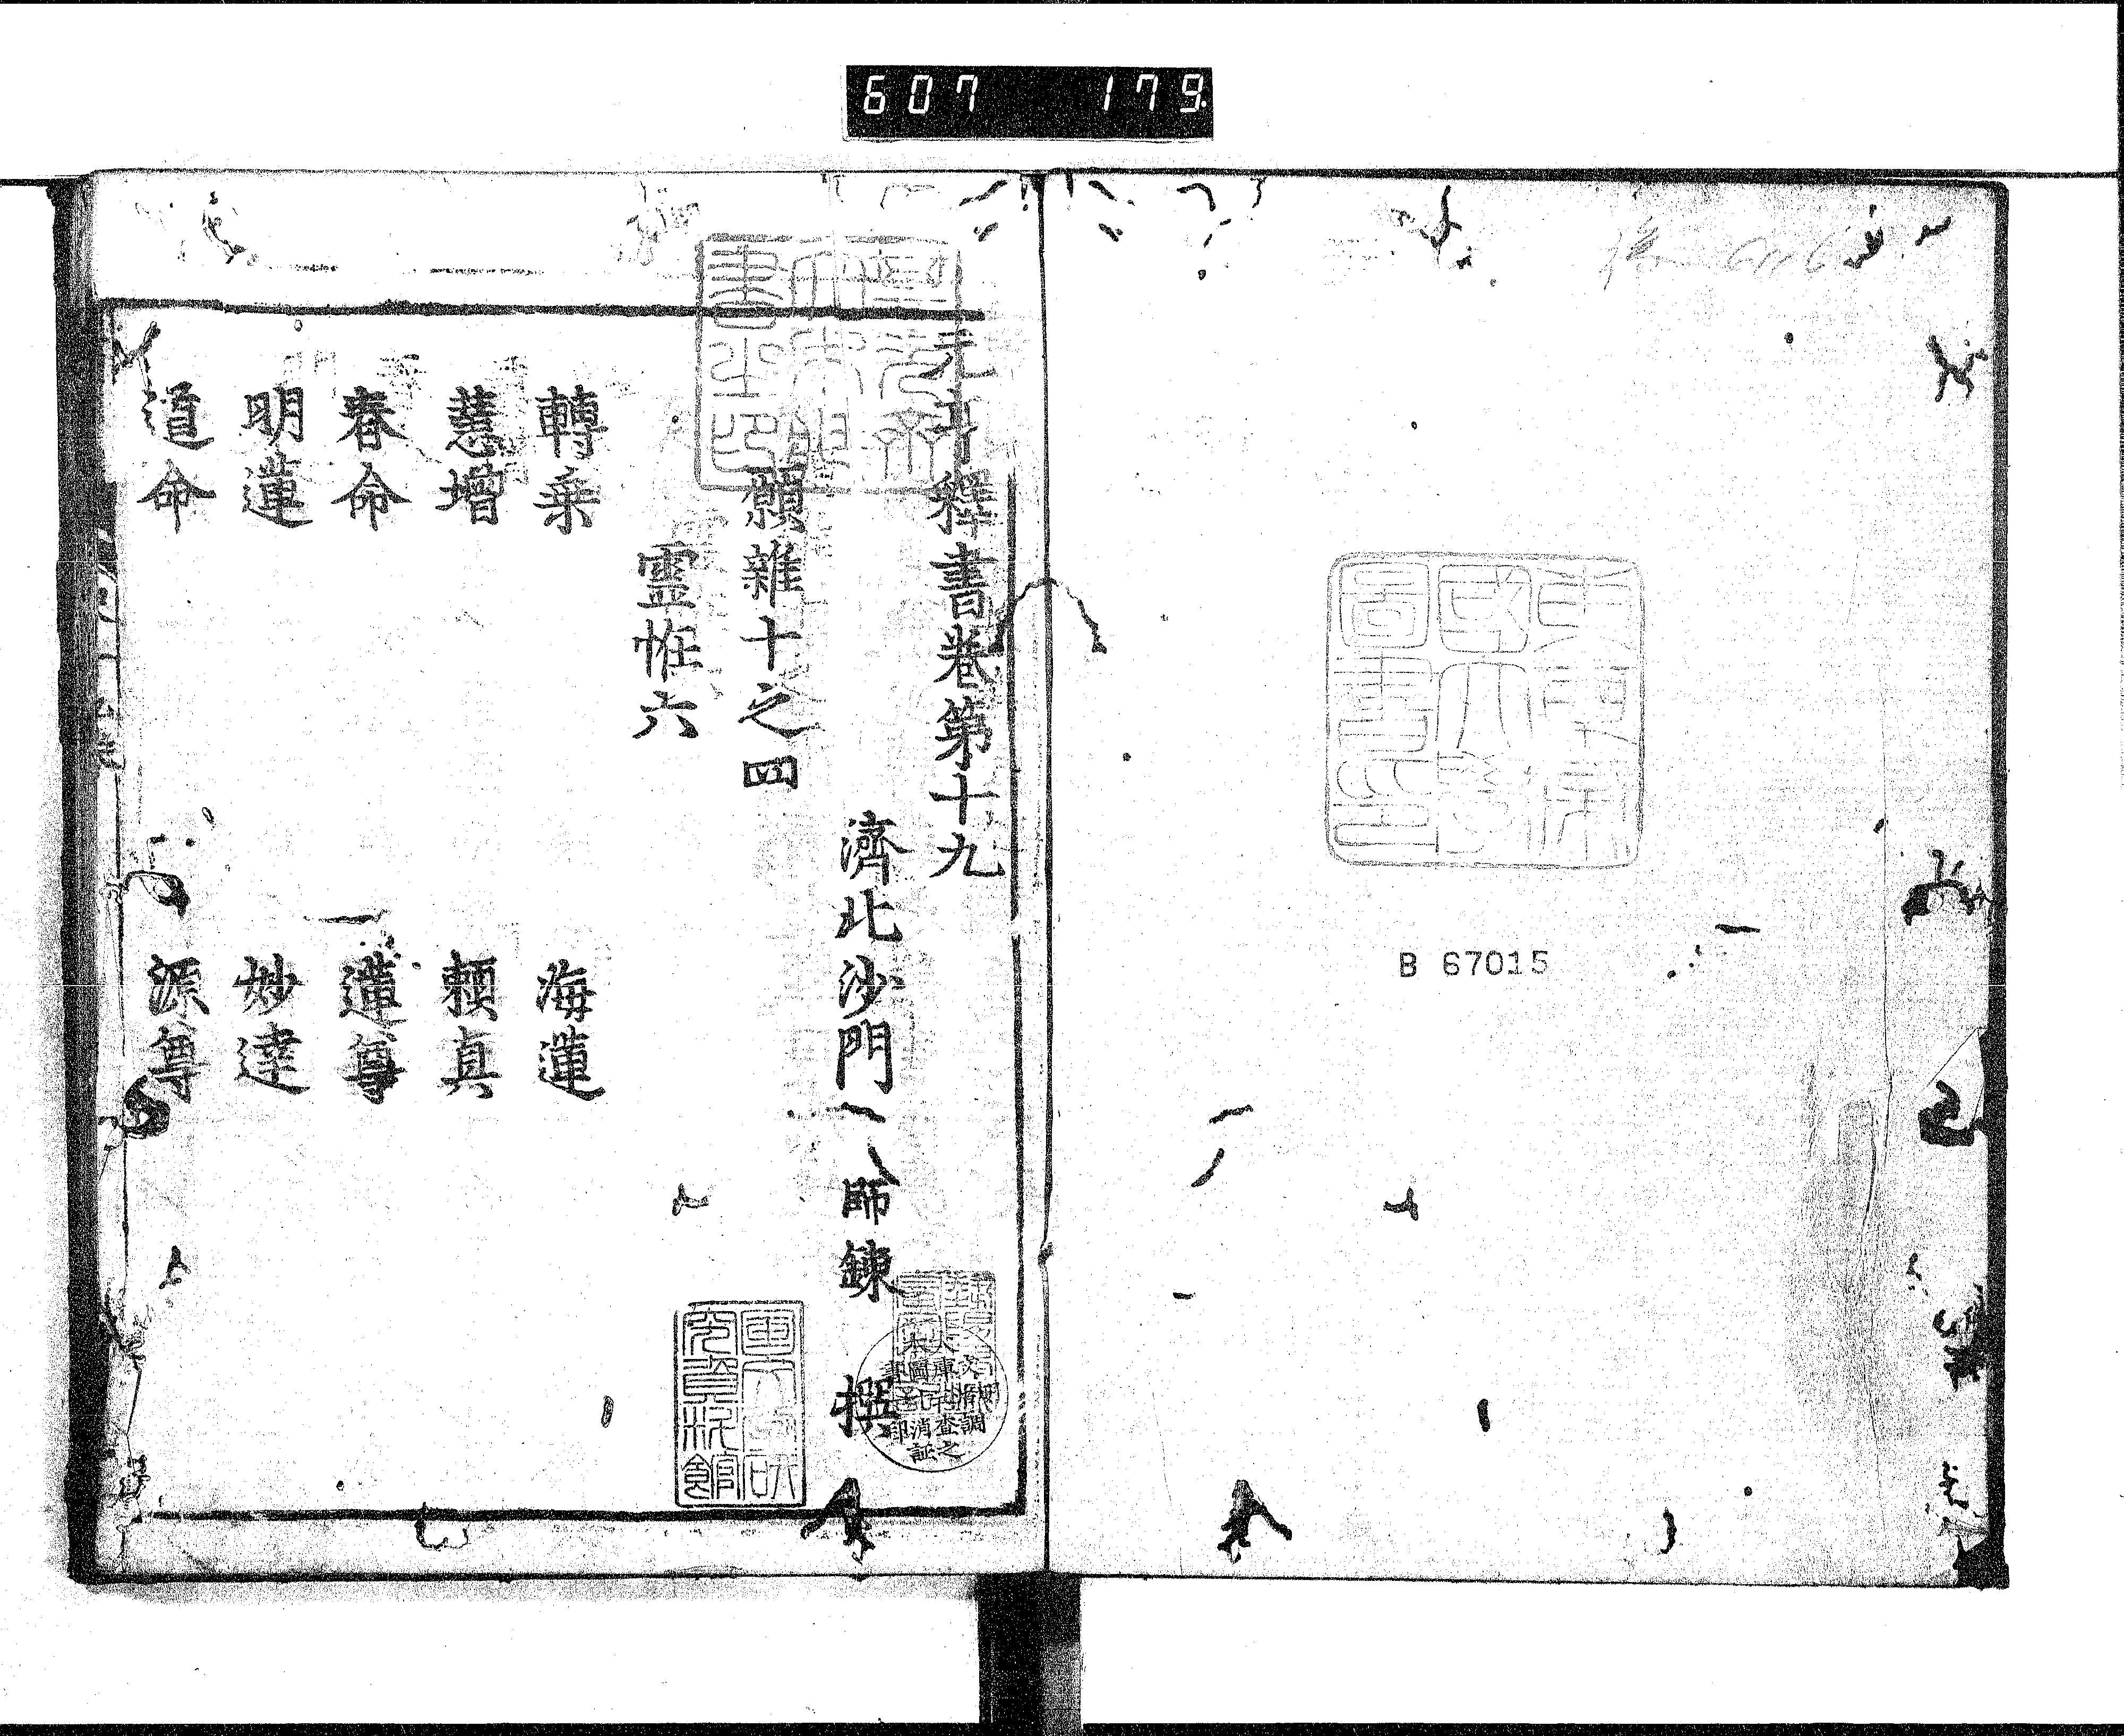 607 179
B 67015
元亨釋書卷第十九
濟北沙門 師錬 撰
願雜十之四
靈恠六
轉乗 海蓮
慧增 賴真
春命 蓮尊
明蓮 妙達
道命 源尊